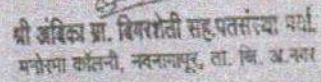 श्री अंबिका ग्रा. बिगरशेती सह.पतसंस्था मर्या.
मनोरमा कॉलनी, नवनागापूर, ता. जि. अ.नगर